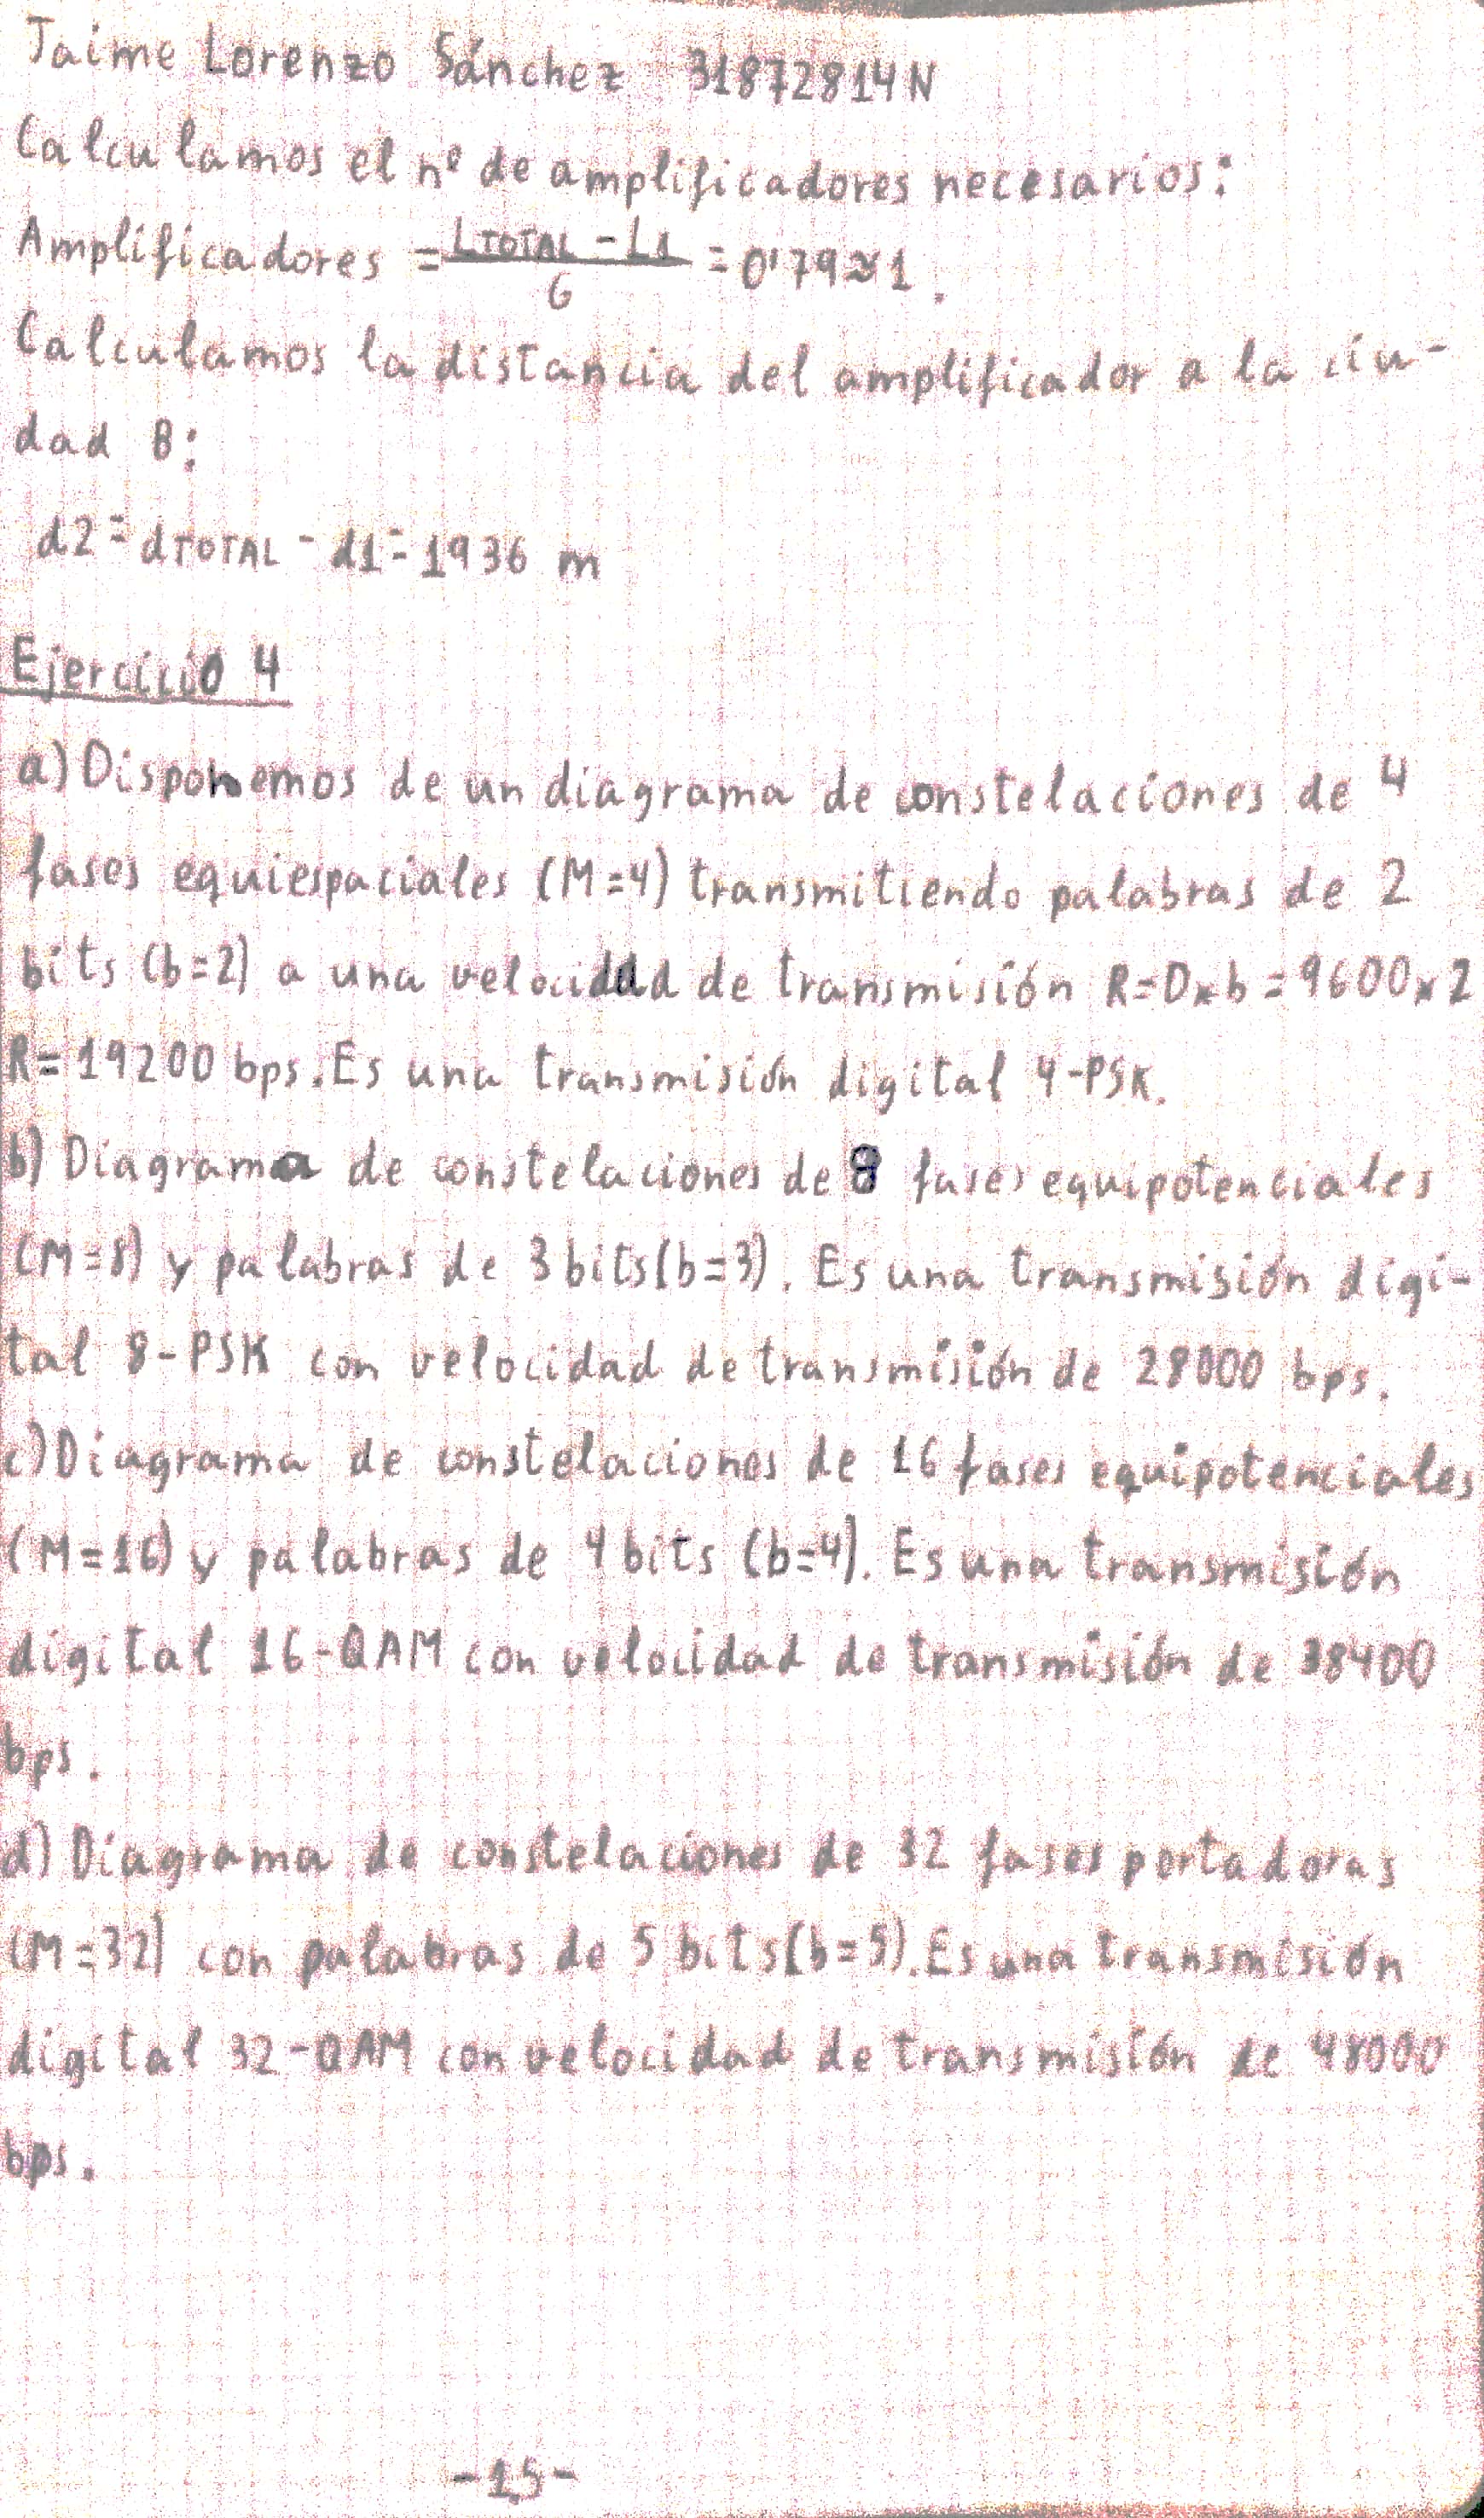 Jaime Lorenzo Sánchez 31872814N
Calculamos el nº de amplificadores necesarios:
Amplificadores = (LTOTAL - L1)/G = 0'79≈1.
Calculamos la distancia del amplificador a la ciu-
dad B:
d2 = dTOTAL - d1 = 1936 m
Ejercicio 4
a) Disponemos de un diagrama de constelaciones de 4
fases equiespaciales (M=4) transmitiendo palabras de 2
bits (b=2) a una velocidad de transmisión R=D*b=9600*2
R=19200 bps. Es una transmisión digital 4-PSK.
b) Diagrama de constelaciones de 8 fases equipotenciales
(M=8) y palabras de 3 bits (b=3). Es una transmisión digi-
tal 8-PSK con velocidad de transmisión de 28000 bps.
c) Diagrama de constelaciones de 16 fases equipotenciales
(M=16) y palabras de 4 bits (b=4). Es una transmisión
digital 16-QAM con velocidad de transmisión de 38400
bps.
d) Diagrama de constelaciones de 32 fases portadoras
(M=32) con palabras de 5 bits (b=5). Es una transmisión
digital 32-QAM con velocidad de transmisión de 48000
bps.
-15-